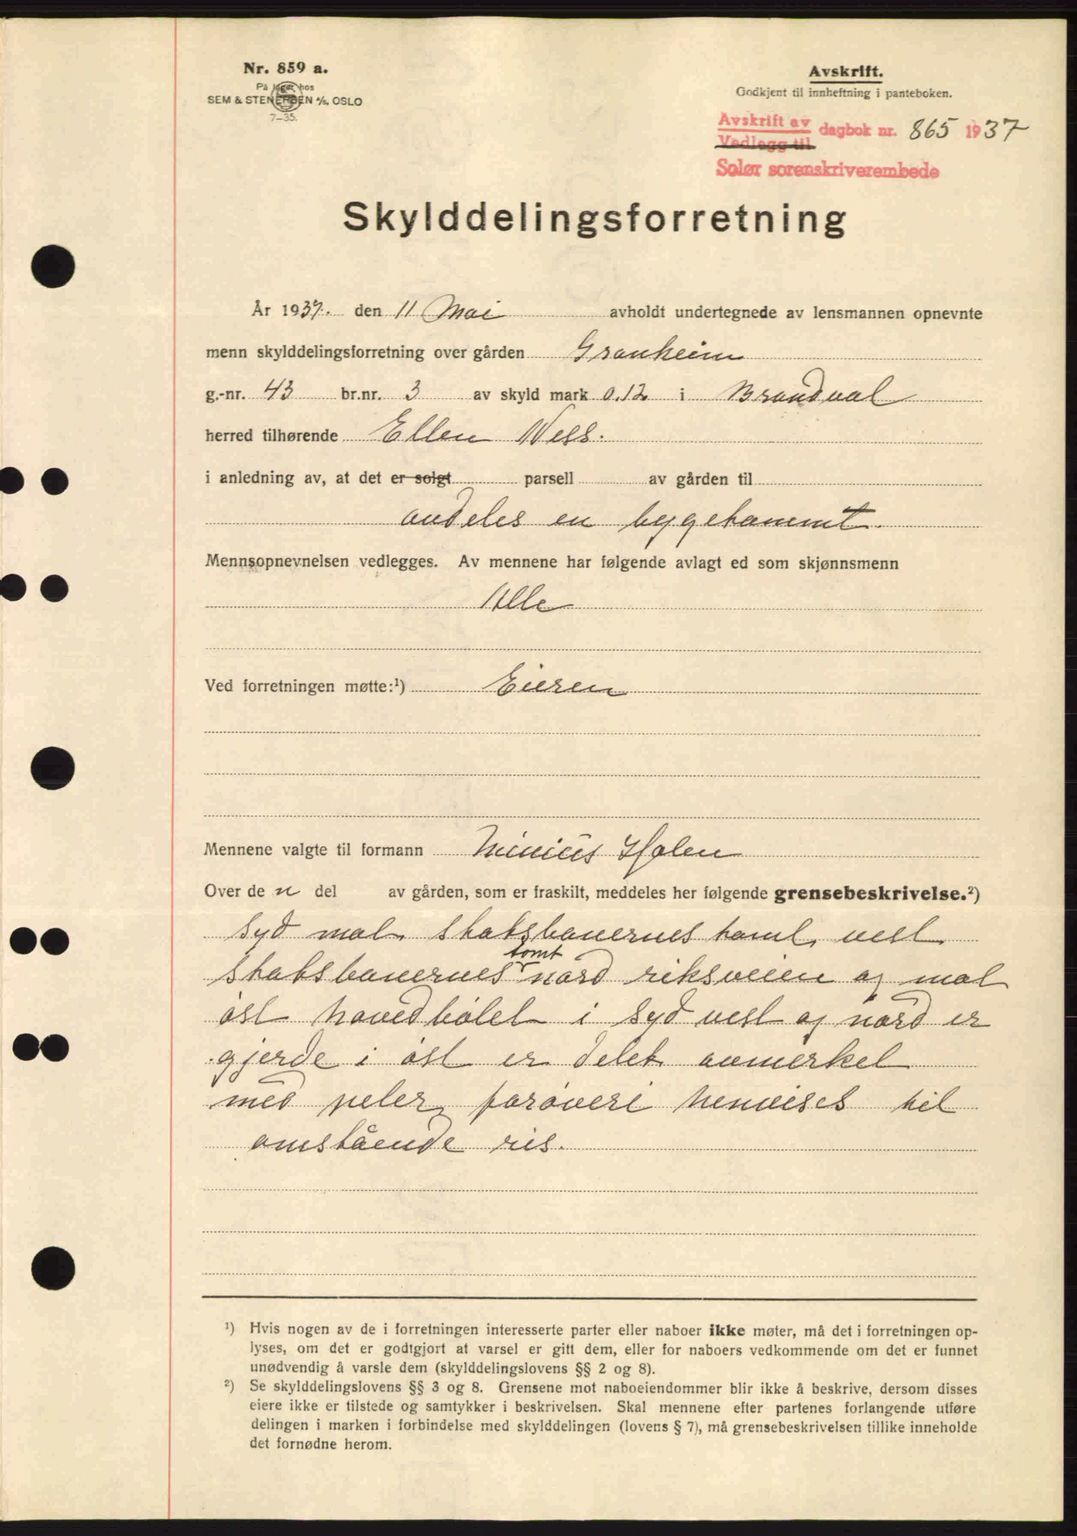 Nr. 859 a.
På lager hos
SEM & STENERSEN A/S, OSLO
7–35.
Avskrift.
Godkjent til innheftning i panteboken.
Avskrift av
Vedlegg til
dagbok nr. 865 1937
Solør sorenskriverembede
Skylddelingsforretning
År 1937. den 11 Mai avholdt undertegnede av lensmannen opnevnte
menn skylddelingsforretning over gården Granheim
g.-nr. 43 br.nr. 3 av skyld mark 0.12 i Brandval
herred tilhørende Ellen Ness.
i anledning av, at det er solgt parsell av gården til
andeles en bygetommt.
Mennsopnevnelsen vedlegges. Av mennene har følgende avlagt ed som skjønnsmenn
Alle
Ved forretningen møtte:¹) Eieren
Mennene valgte til formann Holen
Over de n del av gården, som er fraskilt, meddeles her følgende grensebeskrivelse.²)
syd mot statsbanernes tomt, vest
statsbanernes tomt nord riksveien og mot
øst hovedbølet i syd vest og nord er
gjerde i øst er delet avmerket
med peler, forøveri henvises til
omstående ris.
¹) Hvis nogen av de i forretningen interesserte parter eller naboer ikke møter, må det i forretningen op-
lyses, om det er godtgjort at varsel er gitt dem, eller for naboers vedkommende om det er funnet
unødvendig å varsle dem (skylddelingslovens §§ 2 og 8).
²) Se skylddelingslovens §§ 3 og 8. Grensene mot naboeiendommer blir ikke å beskrive, dersom disses
eiere ikke er tilstede og samtykker i beskrivelsen. Skal mennene efter partenes forlangende utføre
delingen i marken i forbindelse med skylddelingen (lovens § 7), må grensebeskrivelsen tillike inneholde
det fornødne herom.